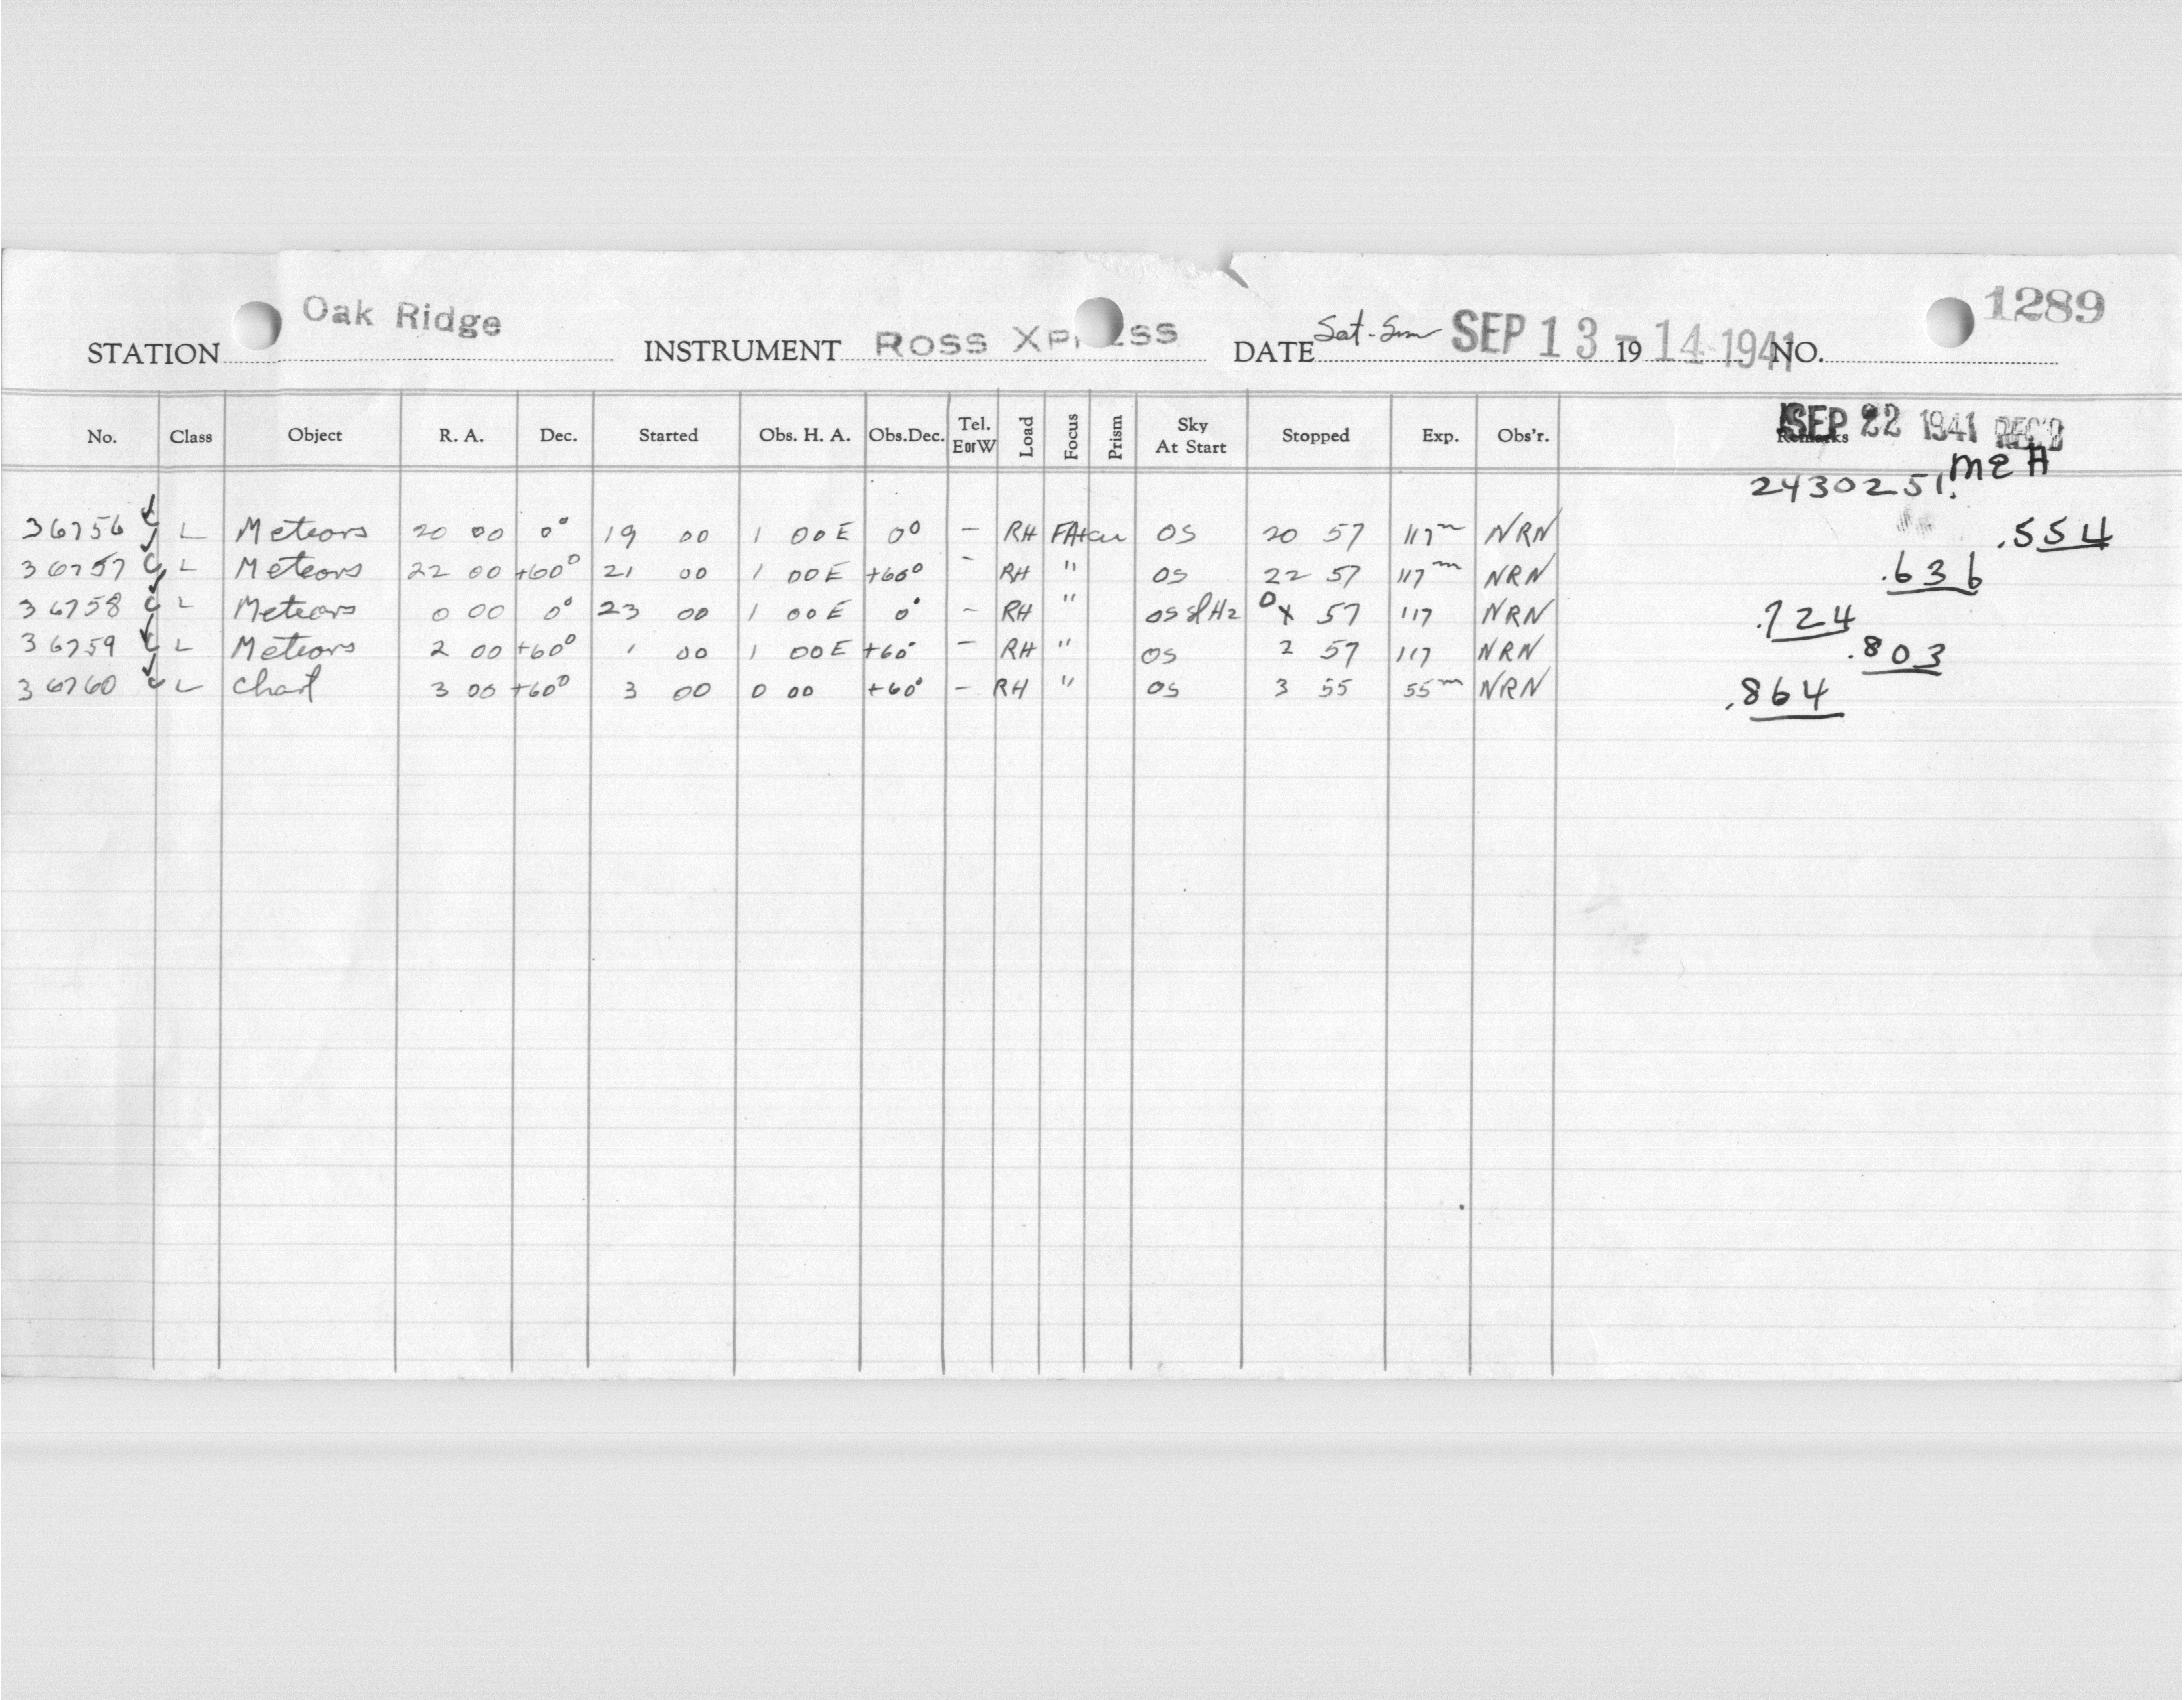 1289
Oak Ridge
STATION INSTRUMENT Ross Xpress DATE Sat-Sun SEP 13-14 1941 19 NO.
No. Class Object R. A. Dec. Started Obs. H. A. Obs.Dec. Tel. E or W Load Focus Prism Sky At Start Stopped Exp. Obs'r. Remarks
SEP 22 1941 REC'D
MEH
2430251.
36756 C L Meteors 20 00 0° 19 00 1 00 E 0° - RH OS 20 57 117m NRN .554
36757 C L Meteors 22 00 +60° 21 00 1 00 E +60° - RH " OS 22 57 117m NRN .636
36758 C L Meteors 0 00 0° 23 00 1 00 E 0° - RH " OS sl Hz 0 57 117 NRN .724
36759 C L Meteors 2 00 +60° 1 00 1 00 E +60° - RH " OS 2 57 117 NRN .803
36760 C L Chart 3 00 +60° 3 00 0 00 +60° - RH " OS 3 55 55m NRN .864